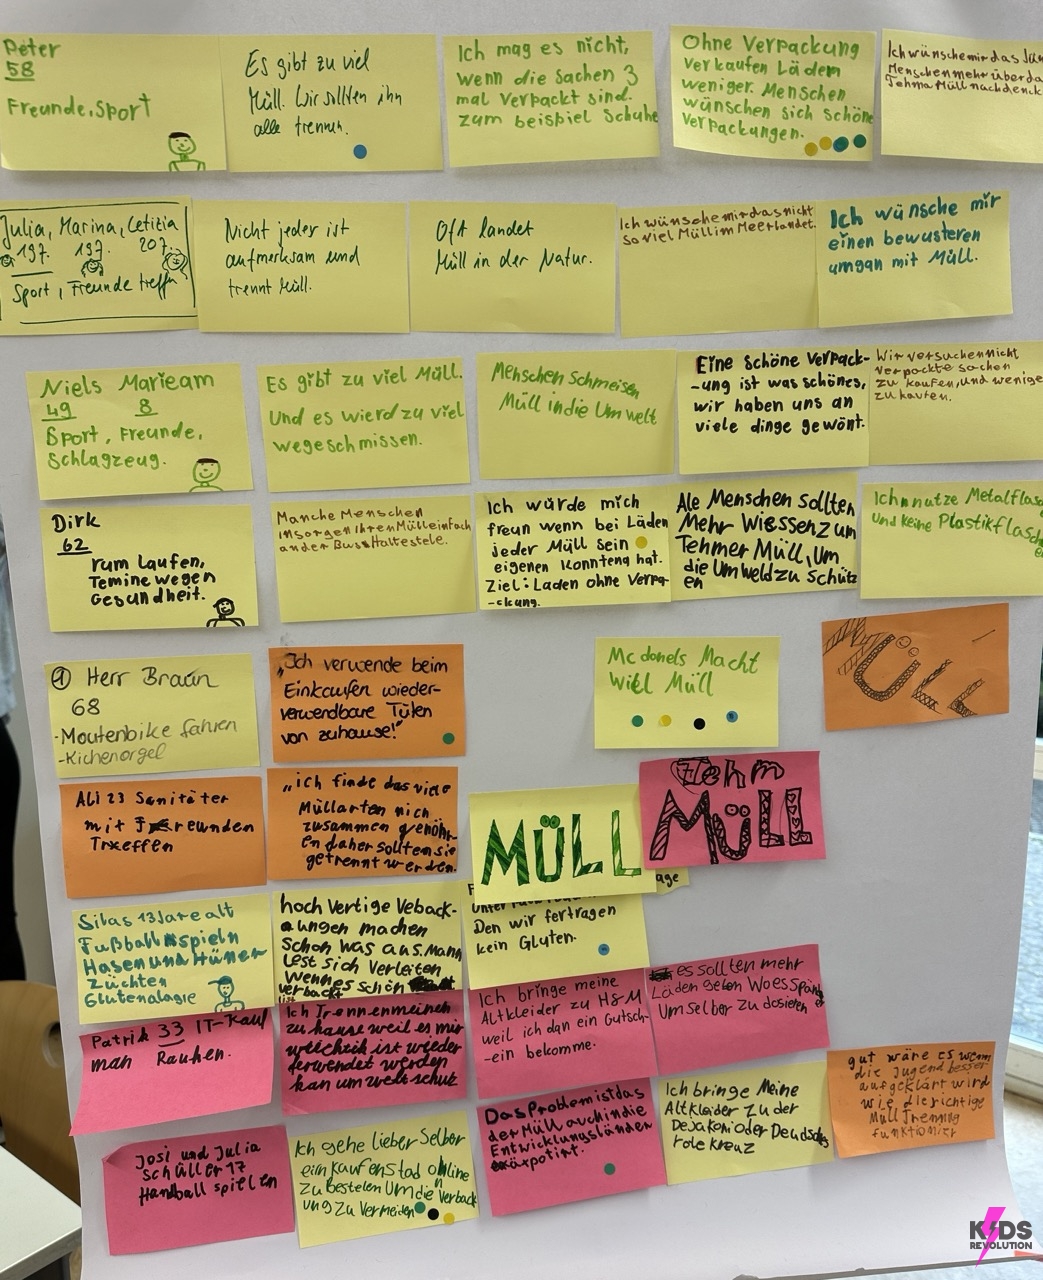 Peter
58
Freunde, Sport
Es gibt zu viel
Müll. Wir sollten ihn
alle trennen.
Ich mag es nicht,
wenn die Sachen 3
mal verpackt sind.
zum beispiel Schuhe
Ohne Verpackung
verkaufen Läden
weniger. Menschen
wünschen sich schöne
Verpackungen.
Ich wünsche mir das
Menschen mehr über da
Tehma Müll nachdenk
Julia, Marina, Letizia
19J. 19J. 20J.
Sport, Freunde treffn
Nicht jeder ist
aufmerksam und
trennt Müll.
Oft landet
Müll in der Natur.
Ich wünsche mir das nicht
so viel Müll im Meer landet.
Ich wünsche mir
einen bewusteren
umgan mit Müll.
Niels Marieam
49 8
Sport, Freunde,
Schlagzeug.
Es gibt zu viel Müll.
Und es wierd zu viel
wegeschmissen.
Menschen Schmeisen
Müll in die Umwelt
Eine schöne Verpack-
-ung ist was schönes,
wir haben uns an
viele dinge gewönt.
Wir versuchen nicht
verpackte sachen
zu kaufen, und wenige
zu kaufen.
Dirk
62
rum Laufen,
Temine wegen
Gesundheit.
Manche Menschen
insorgen ihren Müll einfach
an der Busshaltestele.
Ich würde mich
freun wenn bei Läden
jeder Müll sein
eigenen Konnteng hat.
Ziel: Laden ohne Verpa-
-ckung.
Ale Menschen sollten
Mehr Wiessen zum
Tehmer Müll, Um
die Umweld zu Schütz
en
Ich nutze Metalflas
und keine Plastikflasch
① Herr Braun
68
-Moutenbike fahren
-Kichenorgel
„Ich verwende beim
Einkaufen wieder-
verwendbare Tüten
von zuhause!"
Mc donels Macht
viel Müll
MÜLL
Ali 23 Sanitäter
mit Freunden
Trxeffen
„ich finde das viele
Müllarten nich
zusammen gehöhr-
en daher sollten sie
getrennt werden.
MÜLL
Tehm
MÜLL
age
Silas 13 Jare alt
Fußball spieln
Hasen und Hüner
Züchten
Glutenalagie
hoch Vertige Veback-
ungen machen
Schon was aus. Mann
lest sich Verleiten
Wenn es schön
verbackt
ist
Den wir fertragen
kein Gluten.
Patrik 33 IT-Kauf
man Rauhen.
Ich Trennen meinen
zu hause weil es mir
weichtik ist wieder
ferwendet werden
kan um welt schutz
Ich bringe meine
Altkleider zu H&M
weil ich dan ein Gutsch-
-ein bekomme.
es sollten mehr
Läden geben
Um selber zu dosieren
Josi und Julia
Schüller 17
Handball spielen
Ich gehe lieber Selber
einkaufen stad online
zu bestelen Um die Verback
ung zu vermeiden
Das Problem ist das
der Müll auch in die
Entwicklungsländer
expotirt.
Ich bringe Meine
Altkleider zu der
Dejakoni oder Deudsches
rote kreuz
gut wäre es wenn
die Jugend besser
aufgeklärt wird
wie die richtige
Mülltrenning
funktionirt
KIDS
REVOLUTION